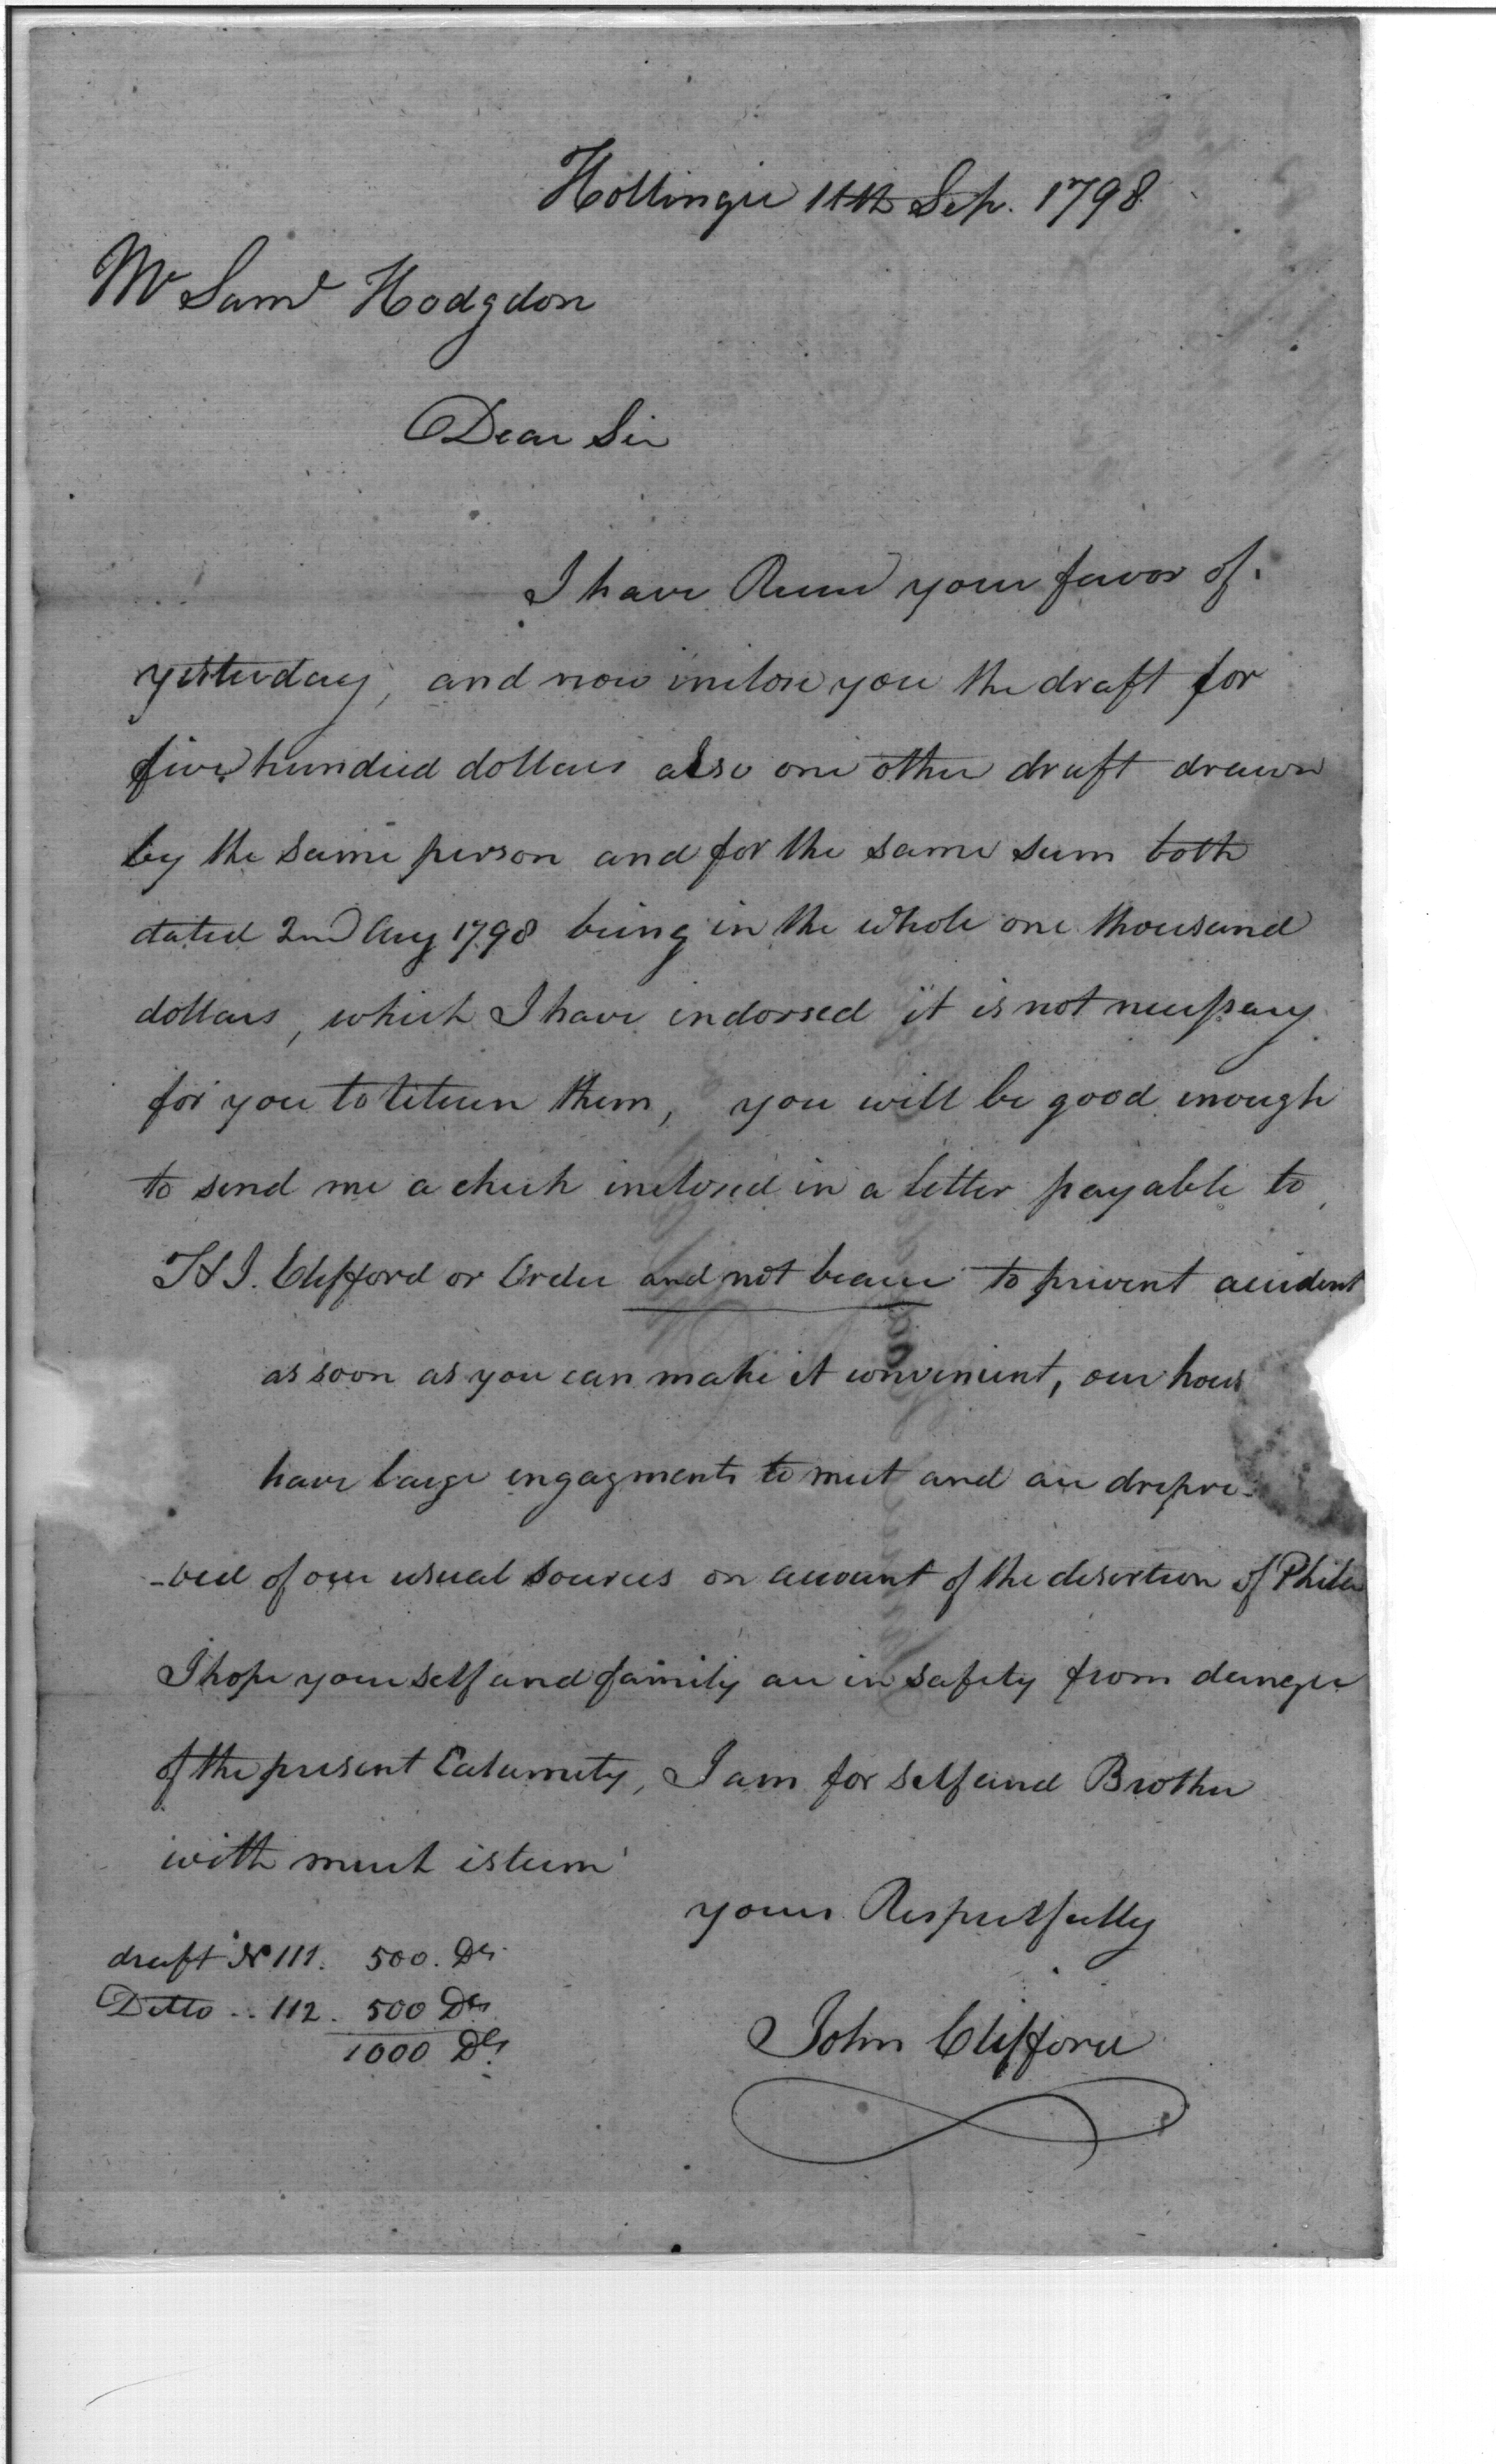 Hottinger 11th Sep. 1798
Mr Saml Hodgdon
Dear Sir
I have Recd your favor of
yesterday, and now inclose you the draft for
five hundred dollars also one other draft drawn
by the same person and for the same sum both
dated 2nd Aug 1798 being in the whole one thousand
dollars, which I have indorsed it is not necessary
for you to return them, you will be good enough
to send me a check inclosed in a letter payable to
T & J. Clifford or Order and not bearer to prevent accident
as soon as you can make it convenient, our hous
have large engagments to meet and are drepri-
-ved of our usual sources on account of the desertion of Phila
I hope yourself and family are in safety from danger
of the present Calamity, I am for self and Brother
with much esteem
yours Respectfully
John Clifford
draft No 111. 500. Ds.
Ditto .. 112. 500 Ds.
1000 Ds.